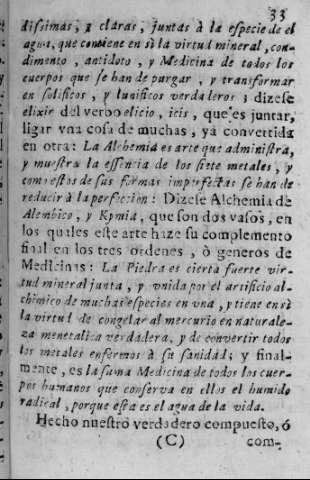 33
dissimas, y claras, juntas à la especie de el
agua, que contiene en sì la virtud mineral, con-
dimento, antidoto, y Medicina de todos los
cuerpos que se han de purgar, y transformar
en solificos, y lunificos verdaderos; dizese
elixir del verbo elicio, icis, que es juntar,
ligar vna cosa de muchas, ya convertida
en otra: La Alchemia es arte que administra,
y muestra la essencia de los siete metales, y
compuestos de sus formas imperfectas se han de
reducir à la perfecion: Dizese Alchemia de
Alembico, y Kymia, que son dos vasos, en
los quales este arte haze su complemento
final en los tres ordenes, ò generos de
Medicinas: La Piedra es cierta fuerte vir-
tud mineral junta, y vnida por el artificio al-
chimico de muchas especies en vna, y tiene en sì
la virtud de congelar al mercurio en naturale-
za menetalica verdadera, y de convertir todos
los metales enfermos à su sanidad; y final-
mente, es la suma Medicina de todos los cuer-
pos humanos que conserva en ellos el humido
radical, porque esta es el agua de la vida.
Hecho nuestro verdadero compuesto, ó
(C) com-